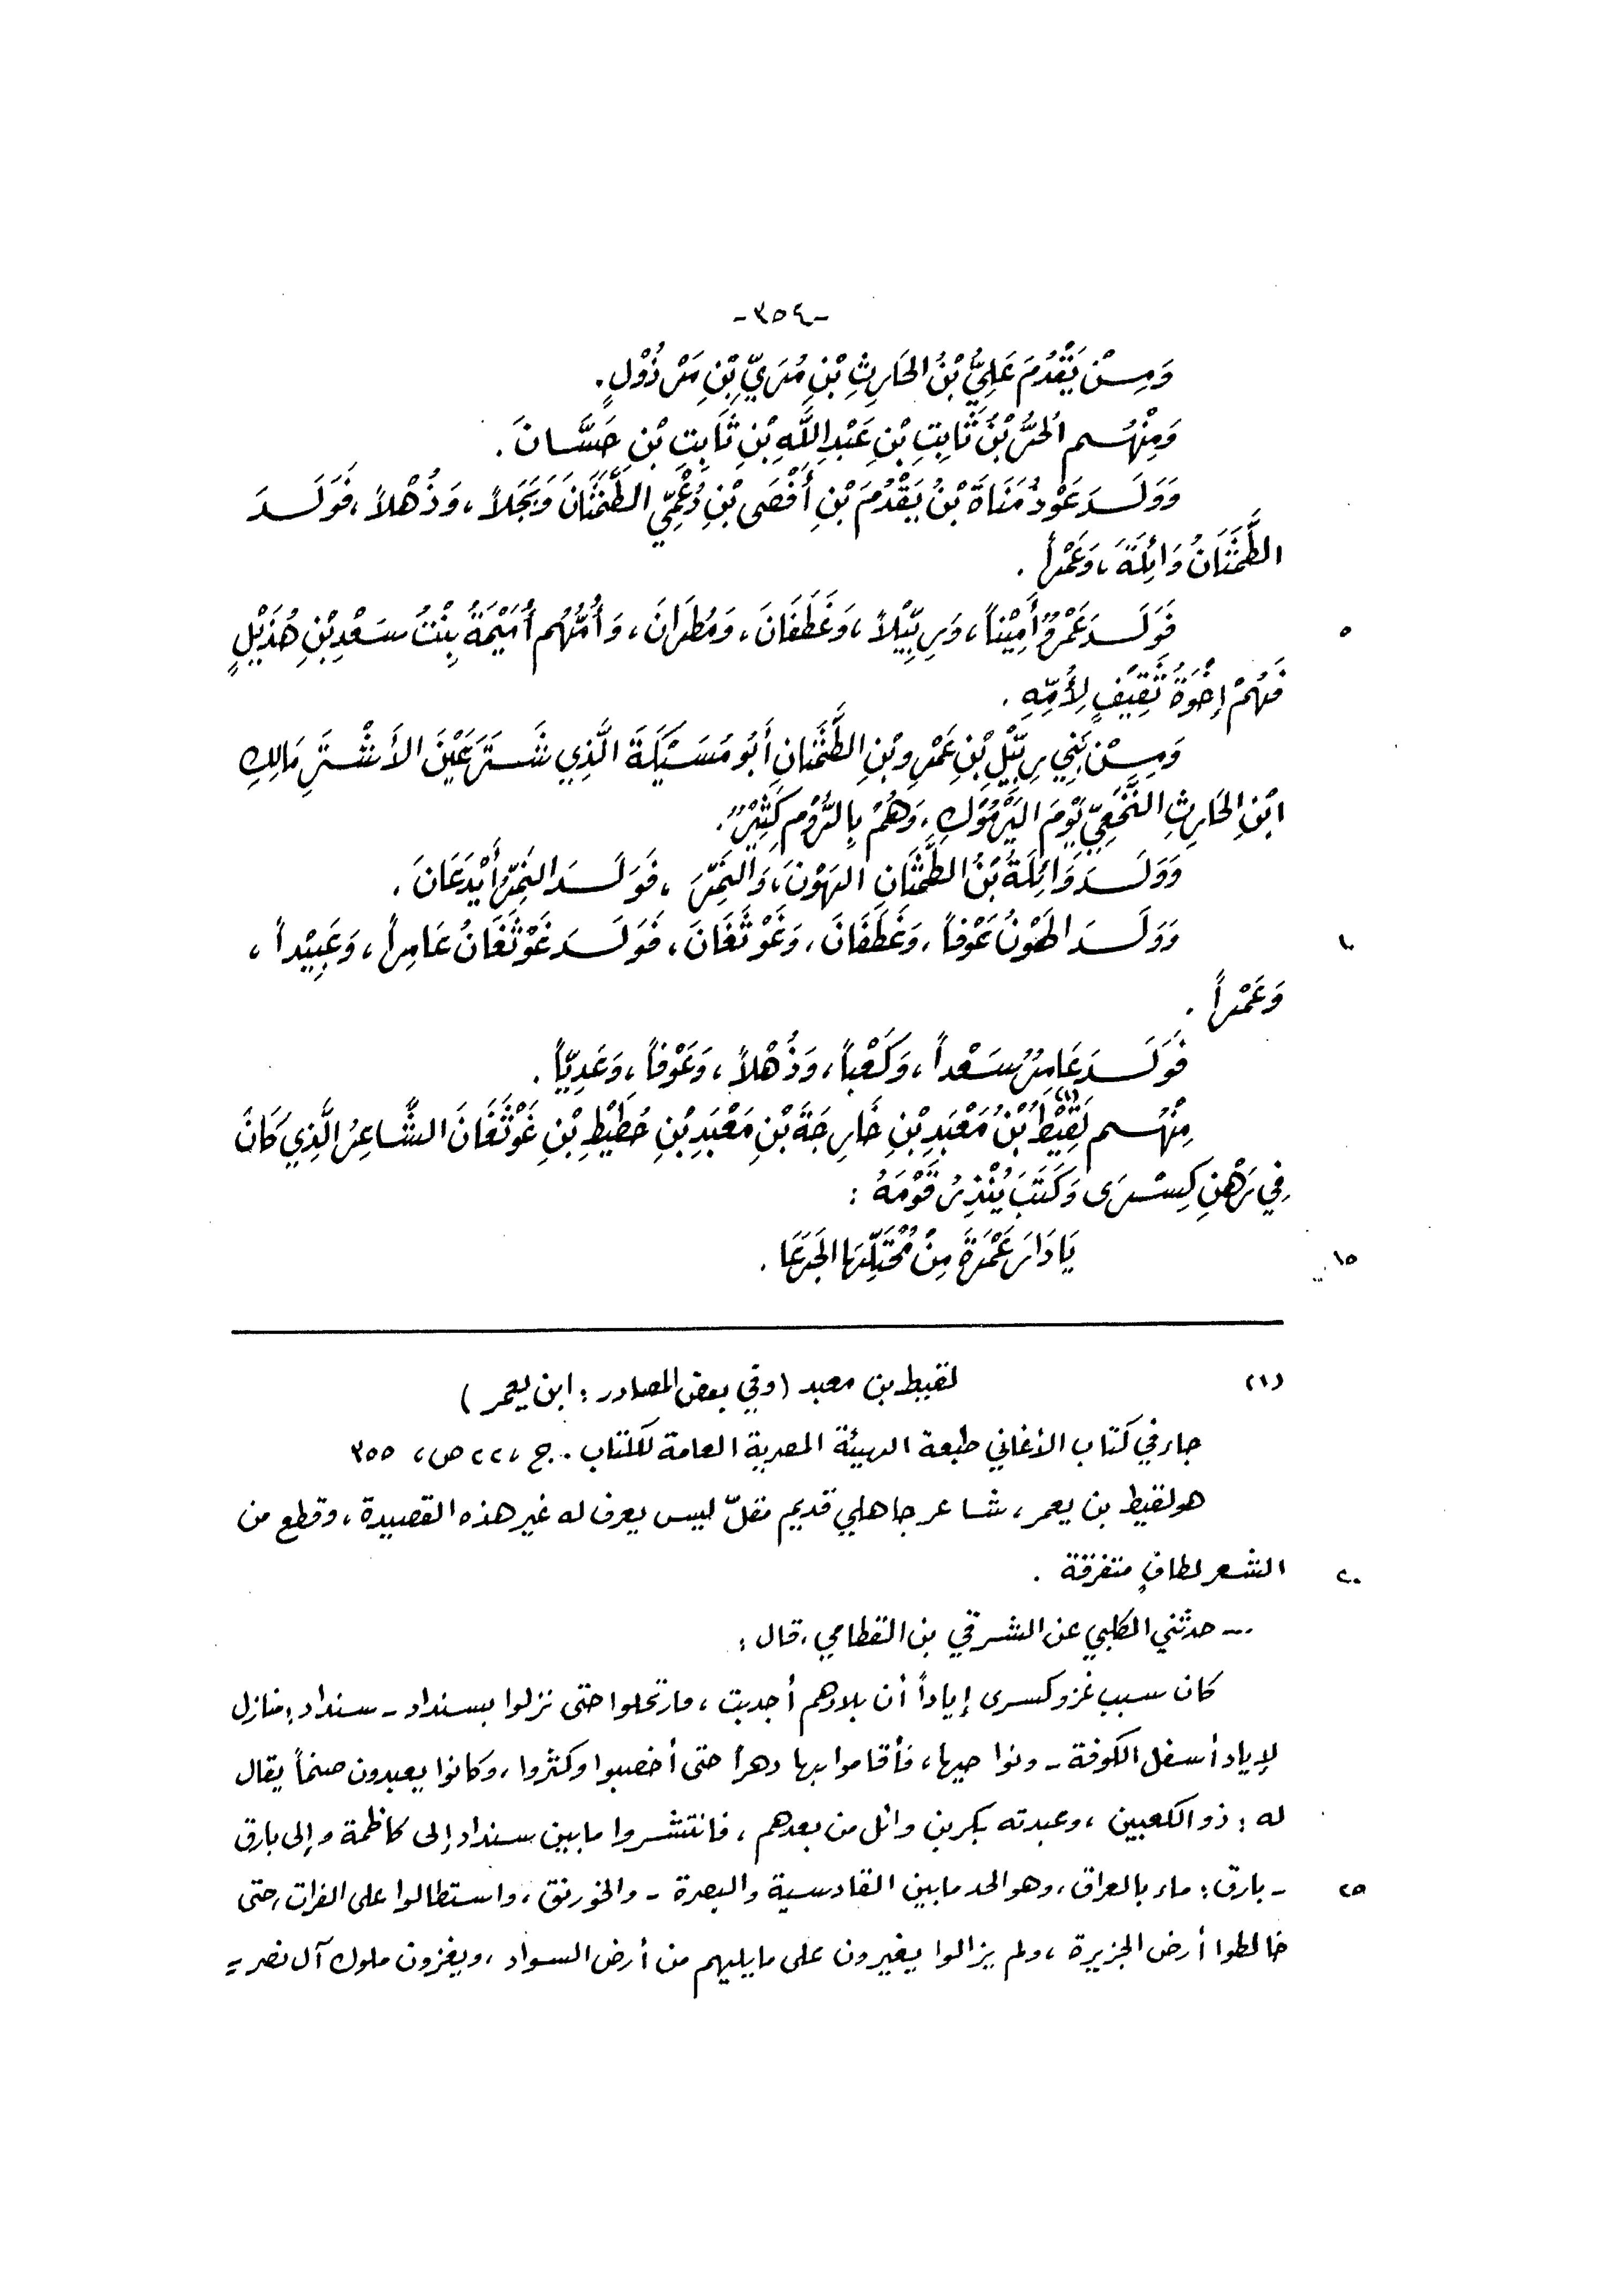 -٣٥٤-
وَمِنْ يَقْدُمَ عَلِيُّ بْنُ الحَارِثِ بْنِ مُرَيِّ بْنِ مَرْذُوْلٍ.
وَمِنْهُم الحُرُّ بْنُ ثَابِتِ بْنِ عَبْدِ اللَّهِ بْنِ ثَابِتِ بْنِ حَسَّانَ.
وَوَلَدَ عَوْذُ مَنَاةَ بْنُ يَقْدُمَ بْنِ أَفْصَى بْنِ دُعْمِيِّ الطَّمَثَانَ وَبَجَلاً، وَذُهْلاً، فَوَلَدَ
الطَّمَثَانُ وَائِلَةَ، وَعَمْراً.
٥ فَوَلَدَ عَمْرٌو أَمِيْناً، وَرِبِّيْلاً، وَغَطَفَانَ، وَمُطَرانَ، وَأُمُّهُم أُمَيْمَةُ بِنْتُ سَعْدِ بْنِ هُذَيْلٍ
فَهُمْ إِخْوَةُ ثَقِيْفٍ لِأُمِّهِ.
وَمِنْ بَنِي رِبِّيْلِ بْنِ عَمْرِو بْنِ الطَّمَثَانِ أَبُو مُسَيْكَةَ الَّذِي شَتَرَ عَيْنَ الأَشْتَرِ مَالِكِ
ابْنِ الحَارِثِ النَّخَعِيِّ يَوْمَ اليَرْمُوْكِ، وَهُمْ بِالرُّوْمِ كَثِيْرٌ.
وَوَلَدَ وَائِلَةُ بْنُ الطَّمَثَانِ الهَوْنَ، وَالنَّمِرَ، فَوَلَدَ النَّمِرُ أَيْدَعَانَ.
١٠ وَوَلَدَ الهَوْنُ عَوْفاً، وَغَطَفَانَ، وَغَوْثَغَانَ، فَوَلَدَ غَوْثَغَانُ عَامِراً، وَعَبِيْداً،
وَعَمْراً.
فَوَلَدَ عَامِرٌ سَعْداً، وَكَعْباً، وَذُهْلاً، وَعَوْفاً، وَعَدِيّاً.
مِنْهُم لَقِيْطُ (١) بْنُ مَعْبَدِ بْنِ خَارِجَةَ بْنِ مَعْبَدِ بْنِ حُطَيْطِ بْنِ غَوْثَغَانَ الشَّاعِرُ الَّذِي كَانَ
فِي رَهْنِ كِسْرَى وَكَتَبَ يُنْذِرُ قَوْمَهُ:
١٥ يَا دَارَ عَمْرَةَ مِنْ مُحْتَلِّهَا الجَرَعَا.
(١) لقيط بن معبد (وفي بعض المصادر: ابن يعمر)
جاء في كتاب الأغاني طبعة الهيئة المصرية العامة للكتاب. ج، ٢٢ ص، ٣٥٥
هو لقيط بن يعمر، شاعر جاهلي قديم مقلّ ليس يعرف له غير هذه القصيدة، وقطع من
٢٠ الشعر لطافٍ متفرقة.
... حدثني الكلبي عن الشرقي بن القطامي، قال:
كان سبب غزو كسرى إياداً أن بلادهم أجدبت، فارتحلوا حتى نزلوا بسنداد - سنداد: منازل
لإياد أسفل الكوفة - ونواحيها، فأقاموا بها دهراً حتى أخصبوا وكثروا، وكانوا يعبدون صنماً يقال
له: ذو الكعبين، وعبدته بكر بن وائل من بعدهم، فانتشروا ما بين سنداد إلى كاظمة وإلى بارق
٢٥ - بارق: ماء بالعراق، وهو الحد ما بين القادسية والبصرة - والخورنق، واستطالوا على الفرات، حتى
خالطوا أرض الجزيرة، ولم يزالوا يغيرون على ما يليهم من أرض السواد، ويغزون ملوك آل نصر =